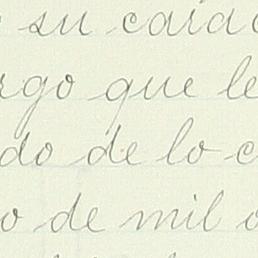 su caída
rgo que le
do de lo c
o de mil